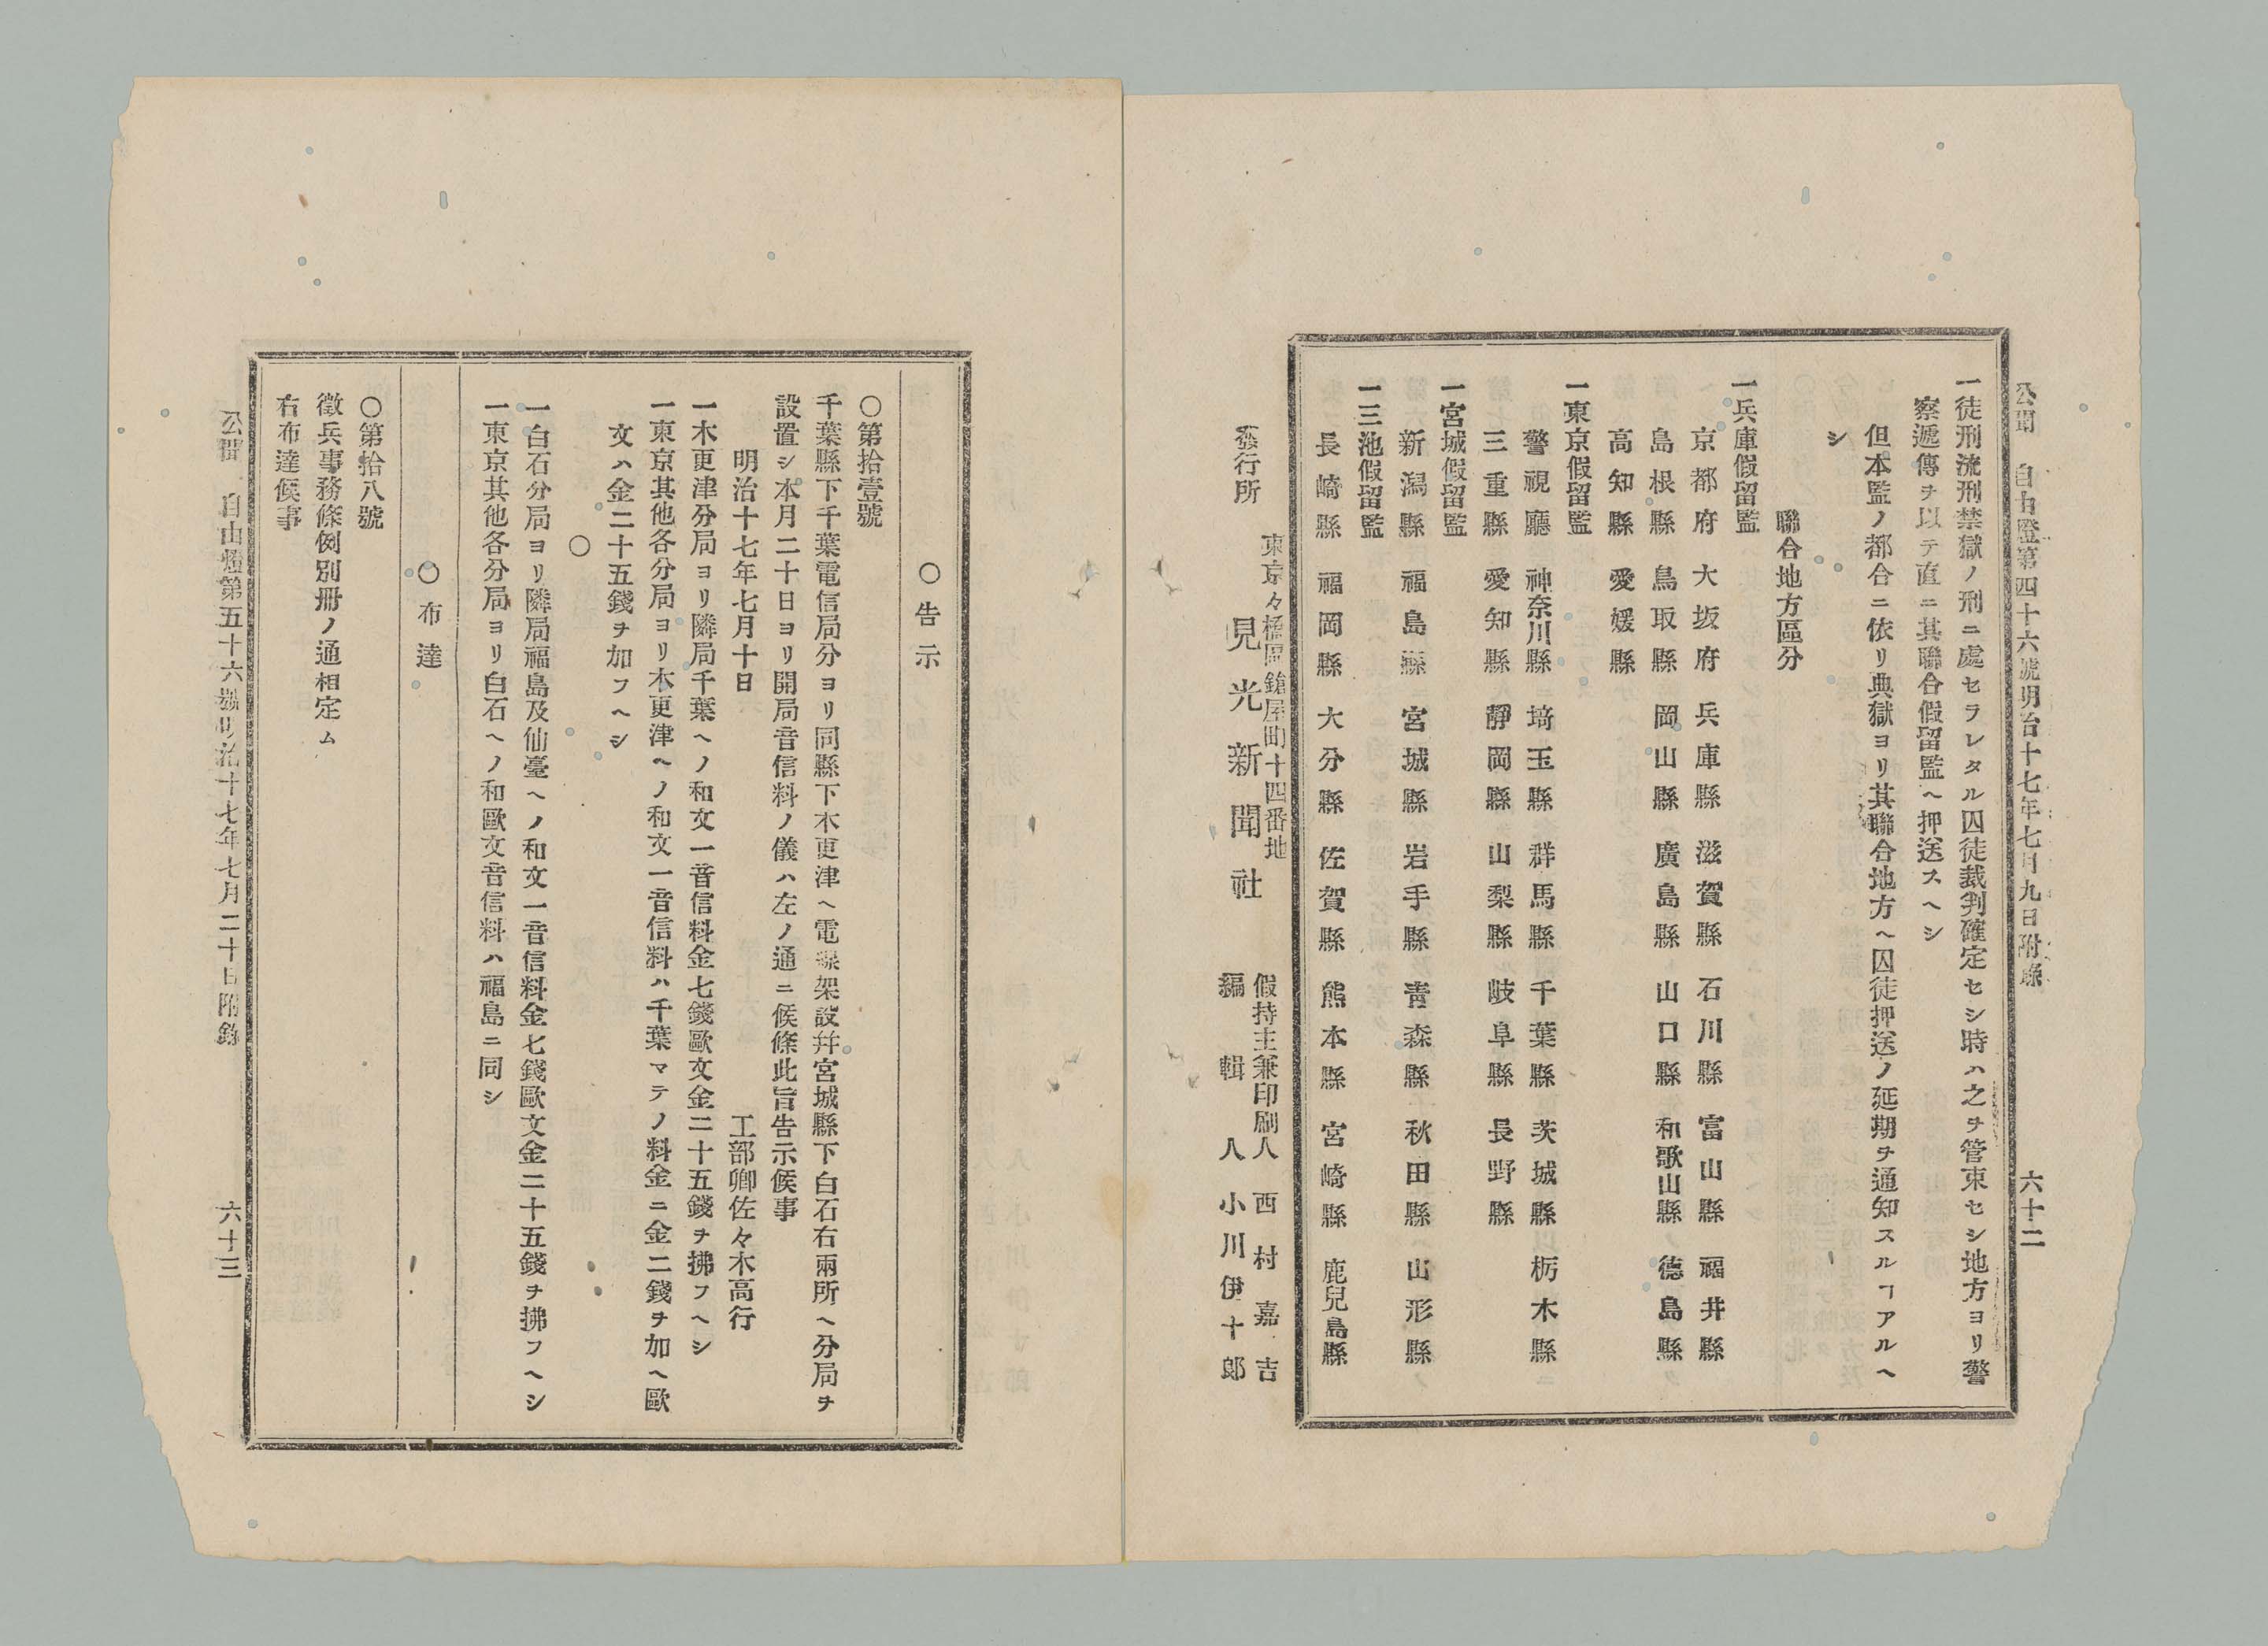 公聞 自由燈第四十六號明治十七年七月九日附錄 六十二
一徒刑流刑禁獄ノ刑ニ處セラレタル囚徒裁判確定セシ時ハ之ヲ管束セシ地方ヨリ警
察遞傳ヲ以テ直ニ其聯合假留監ヘ押送スヘシ
但本監ノ都合ニ依リ典獄ヨリ其聯合地方ヘ囚徒押送ノ延期ヲ通知スルヿアルヘ
シ
聯合地方區分
一兵庫假留監
京都府 大坂府 兵庫縣 滋賀縣 石川縣 富山縣 福井縣
島根縣 鳥取縣 岡山縣 廣島縣 山口縣 和歌山縣 德島縣
高知縣 愛媛縣
一東京假留監
警視廳 神奈川縣 埼玉縣 群馬縣 千葉縣 茨城縣 栃木縣
三重縣 愛知縣 靜岡縣 山梨縣 岐阜縣 長野縣
一宮城假留監
新潟縣 福島縣 宮城縣 岩手縣 靑森縣 秋田縣 山形縣
一三池假留監
長崎縣 福岡縣 大分縣 佐賀縣 熊本縣 宮崎縣 鹿兒島縣
東京々橋區鎗屋町十四番地
發行所 見光新聞社
假持主兼印刷人 西村嘉吉
編輯人 小川伊十郞
○告示
○第拾壹號
千葉縣下千葉電信局分ヨリ同縣下木更津ヘ電線架設幷宮城縣下白石右兩所ヘ分局ヲ
設置シ本月二十日ヨリ開局音信料ノ儀ハ左ノ通ニ候條此旨告示候事
明治十七年七月十日 工部卿佐々木高行
一木更津分局ヨリ隣局千葉ヘノ和文一音信料金七錢歐文金二十五錢ヲ拂フヘシ
一東京其他各分局ヨリ木更津ヘノ和文一音信料ハ千葉マテノ料金ニ金二錢ヲ加ヘ歐
文ハ金二十五錢ヲ加フヘシ
○
一白石分局ヨリ隣局福島及仙臺ヘノ和文一音信料金七錢歐文金二十五錢ヲ拂フヘシ
一東京其他各分局ヨリ白石ヘノ和歐文音信料ハ福島ニ同シ
○布達
○第拾八號
徵兵事務條例別冊ノ通相定ム
右布達候事
公聞 自由燈第五十六號明治十七年七月二十日附錄 六十三